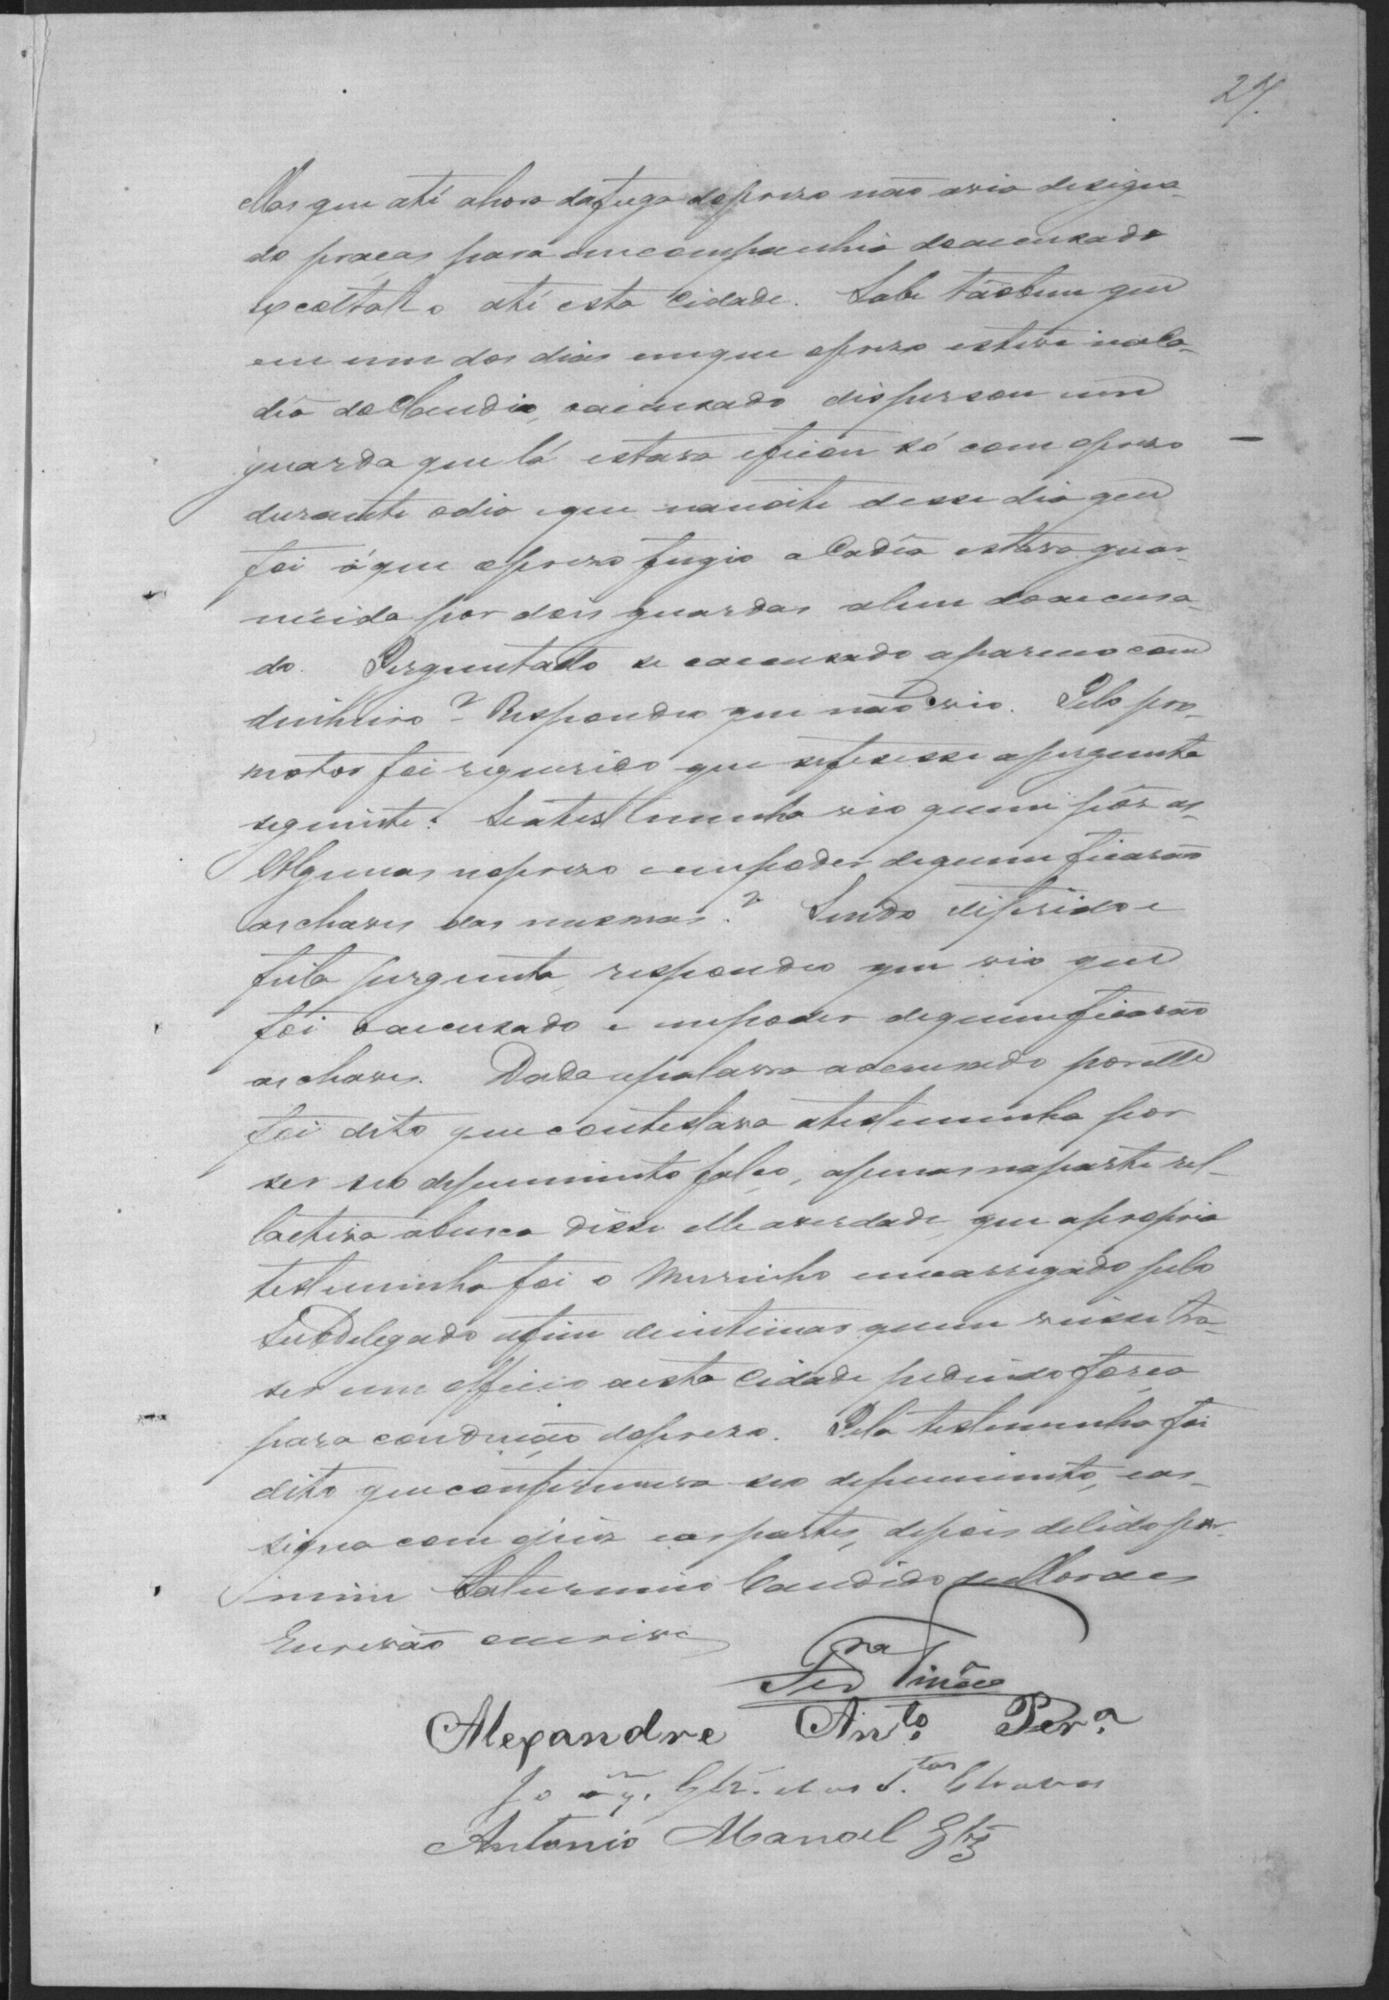 27.
Mas que até ahora da fuga do prezo não avia designa-
do praças para em companhia do accusado
escoltal-o até esta Cidade. Sabe tãobem que
em um dos dias em que o prezo esteve na Ca-
dêa do Claudio, o accusado dispensou um
guarda que lá estava e ficou só com o prezo
durante o dia e que na noite desse dia que
foi á que o prezo fugio a Cadêa estava guar-
necida por dois guardas alem do accusa-
do. Perguntado se o accusado apareceo com
dinheiro? Respondeo que não vio. Pelo pro-
motor foi requerido que se fisesse a pergunta
seguinte: Se a testemunha vio quem pôs as
Algemas no prezo e em poder de quem ficarão
as chaves das mesmas? Sendo diferido e
feita pergunta, respondeo que vio que
foi o accusado e em poder de quem ficarão
as chaves. Dada a palavra ao accusado por elle
foi dito que contestava a testemunha por
ser seo depoimento falço, apenas na parte rel-
lactiva a busca disse elle a verdade, que a propria
testeminha foi o Meirinho encarregado pelo
SubDelegado afim de intimar quem viesse tra-
ser um officio a esta Cidade pedindo força
para condução do prezo. Pela testemunha foi
dito que confirmava seo depoimento, e as-
signa com o juiz e as partes, depois de lido por
mim Saturnino Candido de Moraes
Escrivão o escrevi
Alexandre Ant.o Per.a
dos S.tos Chavas
Antonio Manoel